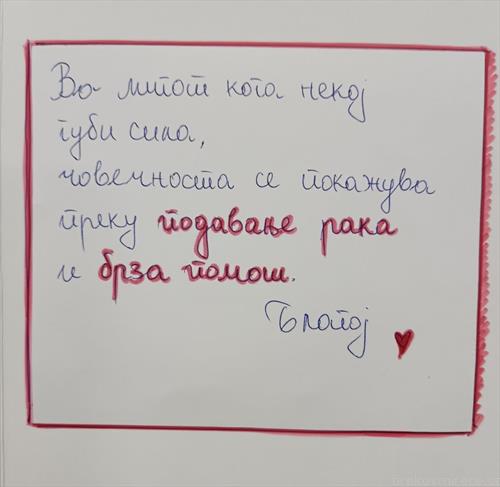 Во мигот кога некој
губи сила,
човечноста се покажува
преку подавање рака
и брза помош.
Благој